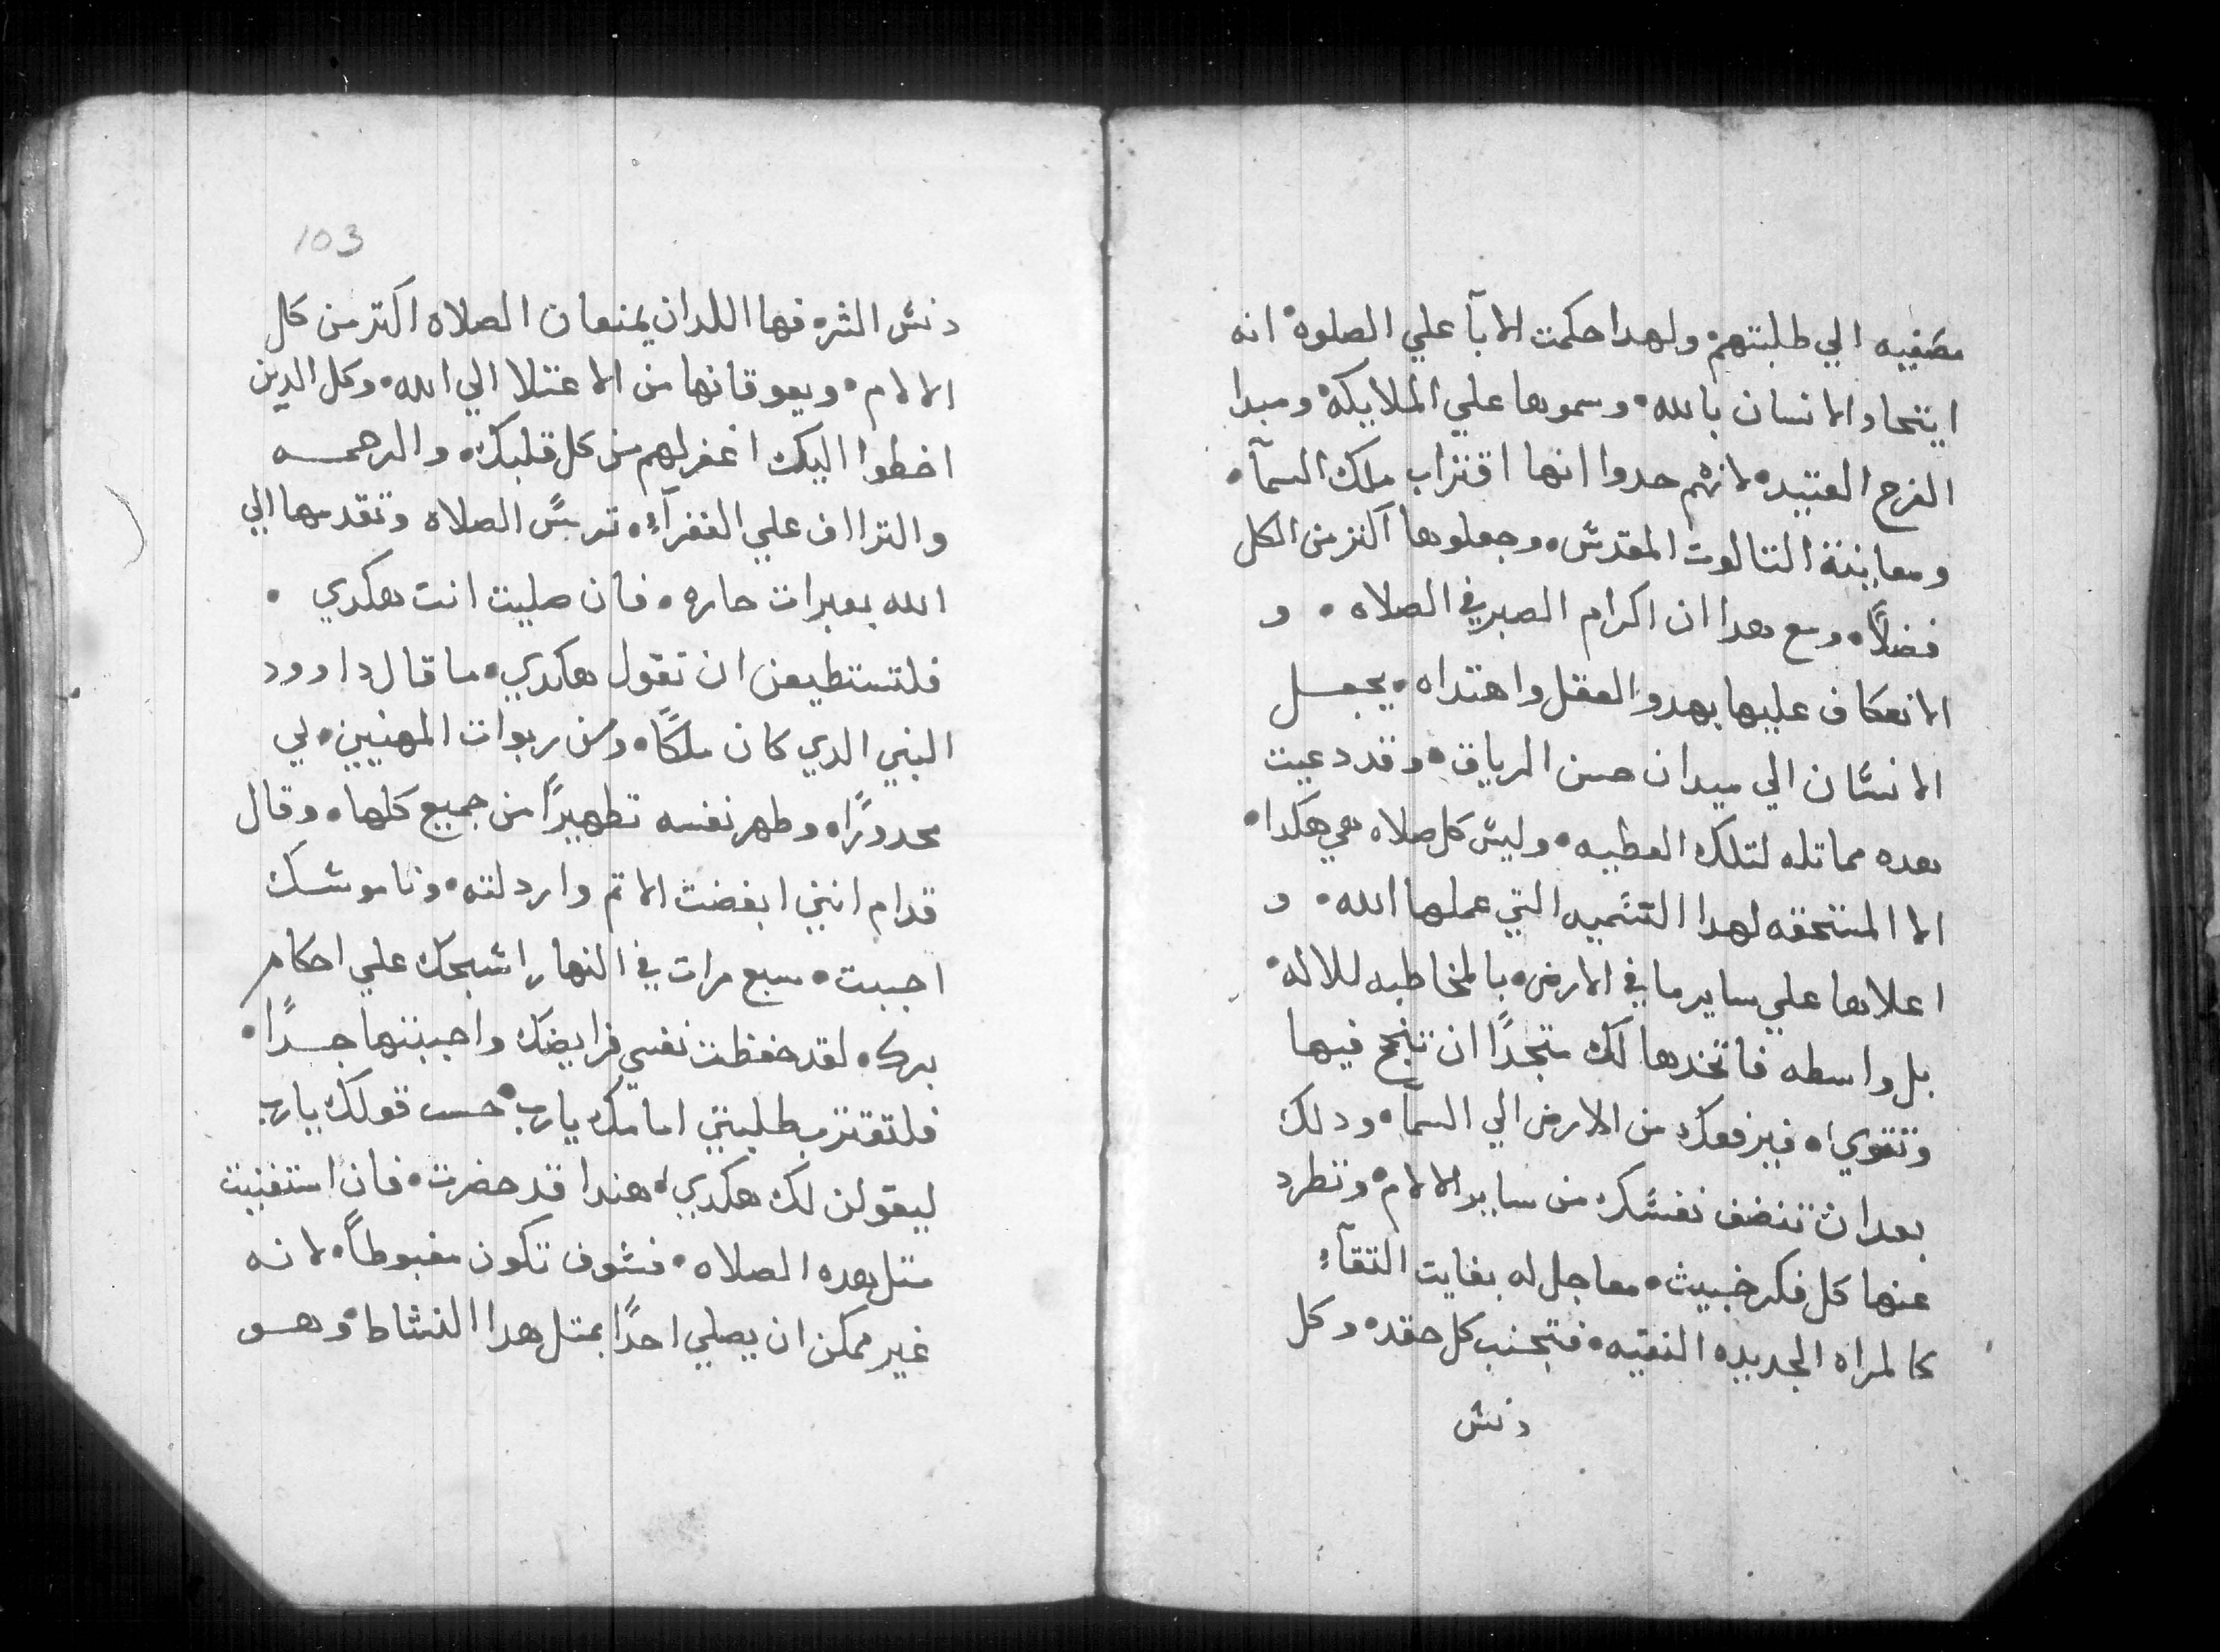 مصغييه الي طلبتهم• ولهدا حكمت الابآ علي الصلوه• انه
ايتحاد الانسان بالله• وسموها علي الملايكه• ومبدا
الفرح العتيد• لانهم حدوا انها اقتراب ملك السمآ•
ومعاينة التالوت المقدس• وجعلوها اكتر من الكل
فضلاً• ومع هدا ان اكرام الصبر في الصلاه• و
الانعكاف عليها بهدو العقل واهتداه• يجعل
الانسان الي ميدان حسن الرياق• وقد دعيت
هده مماتله لتلك العطيه• وليس كل صلاه هي هكدا•
الا المستحقه لهدا التسميه التي عملها الله• و
اعلاها علي ساير ما في الارض• بالمخاطبه للاله•
بل واسطه فاتخدها لك متجدًا ان تنجح فيها
وتتقوي• فيرفعك من الارض الي السمآ• ودلك
بعد ان تنضف نفسك من ساير الالام• وتطرد
عنها كل فكر خبيث• معا جل له بغايت النقآء
كالمراه الجديده النقيه• فتجنب كل حقد• وكل
دنس
103
دنس الشره فهما اللدان يمنعان الصلاه اكتر من كل
الالام• ويعوقانها من الاعتلا الي الله• وكل الدين
اخطوا اليك اغفر لهم من كل قلبك• والرحمه
والتراا ف علي الفقرآء• تربس الصلاه وتقدمها الي
الله بعبرات حاره• فان صليت انت هكدي•
فلتستطيعن ان تقول هكدي• ما قال داوود
النبي الدي كان ملكًا• ومن ربوات المهنيين• لي
محدورًا• وطهر نفسه تطهيرًا من جميع كلها• وقال
قدام انني ابغضت الاتم واردلته• وناموسك
احببت• سبع مرات في النهار اسبحك علي احكام
برك• لقد حفظت نفسي فرايضك واحببتها جدًا•
فلتقترب طلبتي امامك يارب• حسب قولك يارب
ليقولن لك هكدي• هندا قد حضرت• فان استغنيت
متل هده الصلاه• فسوف تكون مغبوطاً• لانه
غير ممكن ان يصلي احدًا بمتل هدا النشاط• وهو